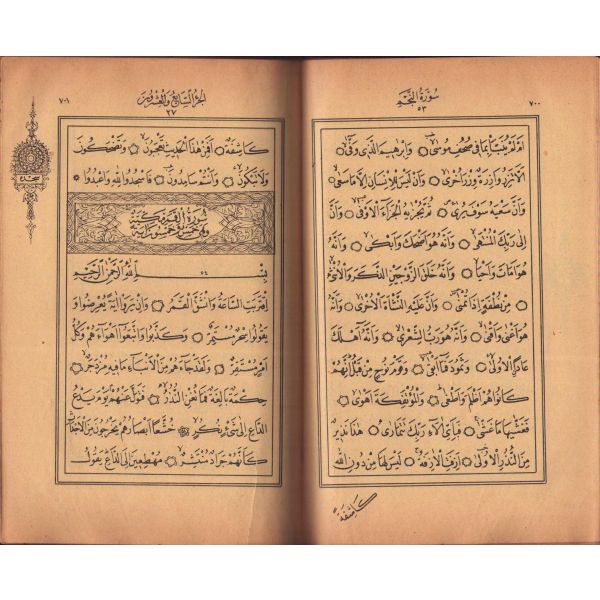 ٧٠٠
سُورَةُ النَّجْمِ
٥٣
اَمْ لَمْ يُنَبَّأْ بِمَا فِي صُحُفِ مُوسٰى ۝ وَاِبْرٰهِيمَ الَّذِي وَفّٰى ۝
اَلَّا تَزِرُ وَازِرَةٌ وِزْرَ اُخْرٰى ۝ وَاَنْ لَيْسَ لِلْاِنْسَانِ اِلَّا مَا سَعٰى ۝
وَاَنَّ سَعْيَهُ سَوْفَ يُرٰى ۝ ثُمَّ يُجْزٰيهُ الْجَزَاءَ الْاَوْفٰى ۝ وَاَنَّ
اِلٰى رَبِّكَ الْمُنْتَهٰى ۝ وَاَنَّهُ هُوَ اَضْحَكَ وَاَبْكٰى ۝ وَاَنَّهُ
هُوَ اَمَاتَ وَاَحْيَا ۝ وَاَنَّهُ خَلَقَ الزَّوْجَيْنِ الذَّكَرَ وَالْاُنْثٰى ۝
مِنْ نُطْفَةٍ اِذَا تُمْنٰى ۝ وَاَنَّ عَلَيْهِ النَّشْاَةَ الْاُخْرٰى ۝ وَاَنَّهُ
هُوَ اَغْنٰى وَاَقْنٰى ۝ وَاَنَّهُ هُوَ رَبُّ الشِّعْرٰى ۝ وَاَنَّهُ اَهْلَكَ
عَادًا الْاُولٰى ۝ وَثَمُودَا فَمَا اَبْقٰى ۝ وَقَوْمَ نُوحٍ مِنْ قَبْلُ اِنَّهُمْ
كَانُوا هُمْ اَظْلَمَ وَاَطْغٰى ۝ وَالْمُؤْتَفِكَةَ اَهْوٰى ۝
فَغَشّٰيهَا مَا غَشّٰى ۝ فَبِاَيِّ اٰلَاءِ رَبِّكَ تَتَمَارٰى ۝ هٰذَا نَذِيرٌ
مِنَ النُّذُرِ الْاُولٰى ۝ اَزِفَتِ الْاٰزِفَةُ ۝ لَيْسَ لَهَا مِنْ دُونِ اللّٰهِ
كَاشِفَةٌ
اَلْجُزْءُ السَّابِعُ وَالْعِشْرُونَ
٢٧
٧٠١
كَاشِفَةٌ ۝ اَفَمِنْ هٰذَا الْحَدِيثِ تَعْجَبُونَ ۝ وَتَضْحَكُونَ
وَلَا تَبْكُونَ ۝ وَاَنْتُمْ سَامِدُونَ ۝ فَاسْجُدُوا لِلّٰهِ وَاعْبُدُوا ۝
سجده
سُورَةُ الْقَمَرِ مَكِّيَّةٌ
وَهِيَ خَمْسٌ وَخَمْسُونَ اٰيَةً
٥٤
بِسْمِ اللّٰهِ الرَّحْمٰنِ الرَّحِيمِ
اِقْتَرَبَتِ السَّاعَةُ وَانْشَقَّ الْقَمَرُ ۝ وَاِنْ يَرَوْا اٰيَةً يُعْرِضُوا وَ
يَقُولُوا سِحْرٌ مُسْتَمِرٌّ ۝ وَكَذَّبُوا وَاتَّبَعُوا اَهْوَاءَهُمْ وَكُلُّ
اَمْرٍ مُسْتَقِرٌّ ۝ وَلَقَدْ جَاءَهُمْ مِنَ الْاَنْبَاءِ مَا فِيهِ مُزْدَجَرٌ ۝
حِكْمَةٌ بَالِغَةٌ فَمَا تُغْنِ النُّذُرُ ۝ فَتَوَلَّ عَنْهُمْ يَوْمَ يَدْعُ
الدَّاعِ اِلٰى شَيْءٍ نُكُرٍ ۝ خُشَّعًا اَبْصَارُهُمْ يَخْرُجُونَ مِنَ الْاَجْدَاثِ
كَاَنَّهُمْ جَرَادٌ مُنْتَشِرٌ ۝ مُهْطِعِينَ اِلَى الدَّاعِ يَقُولُ